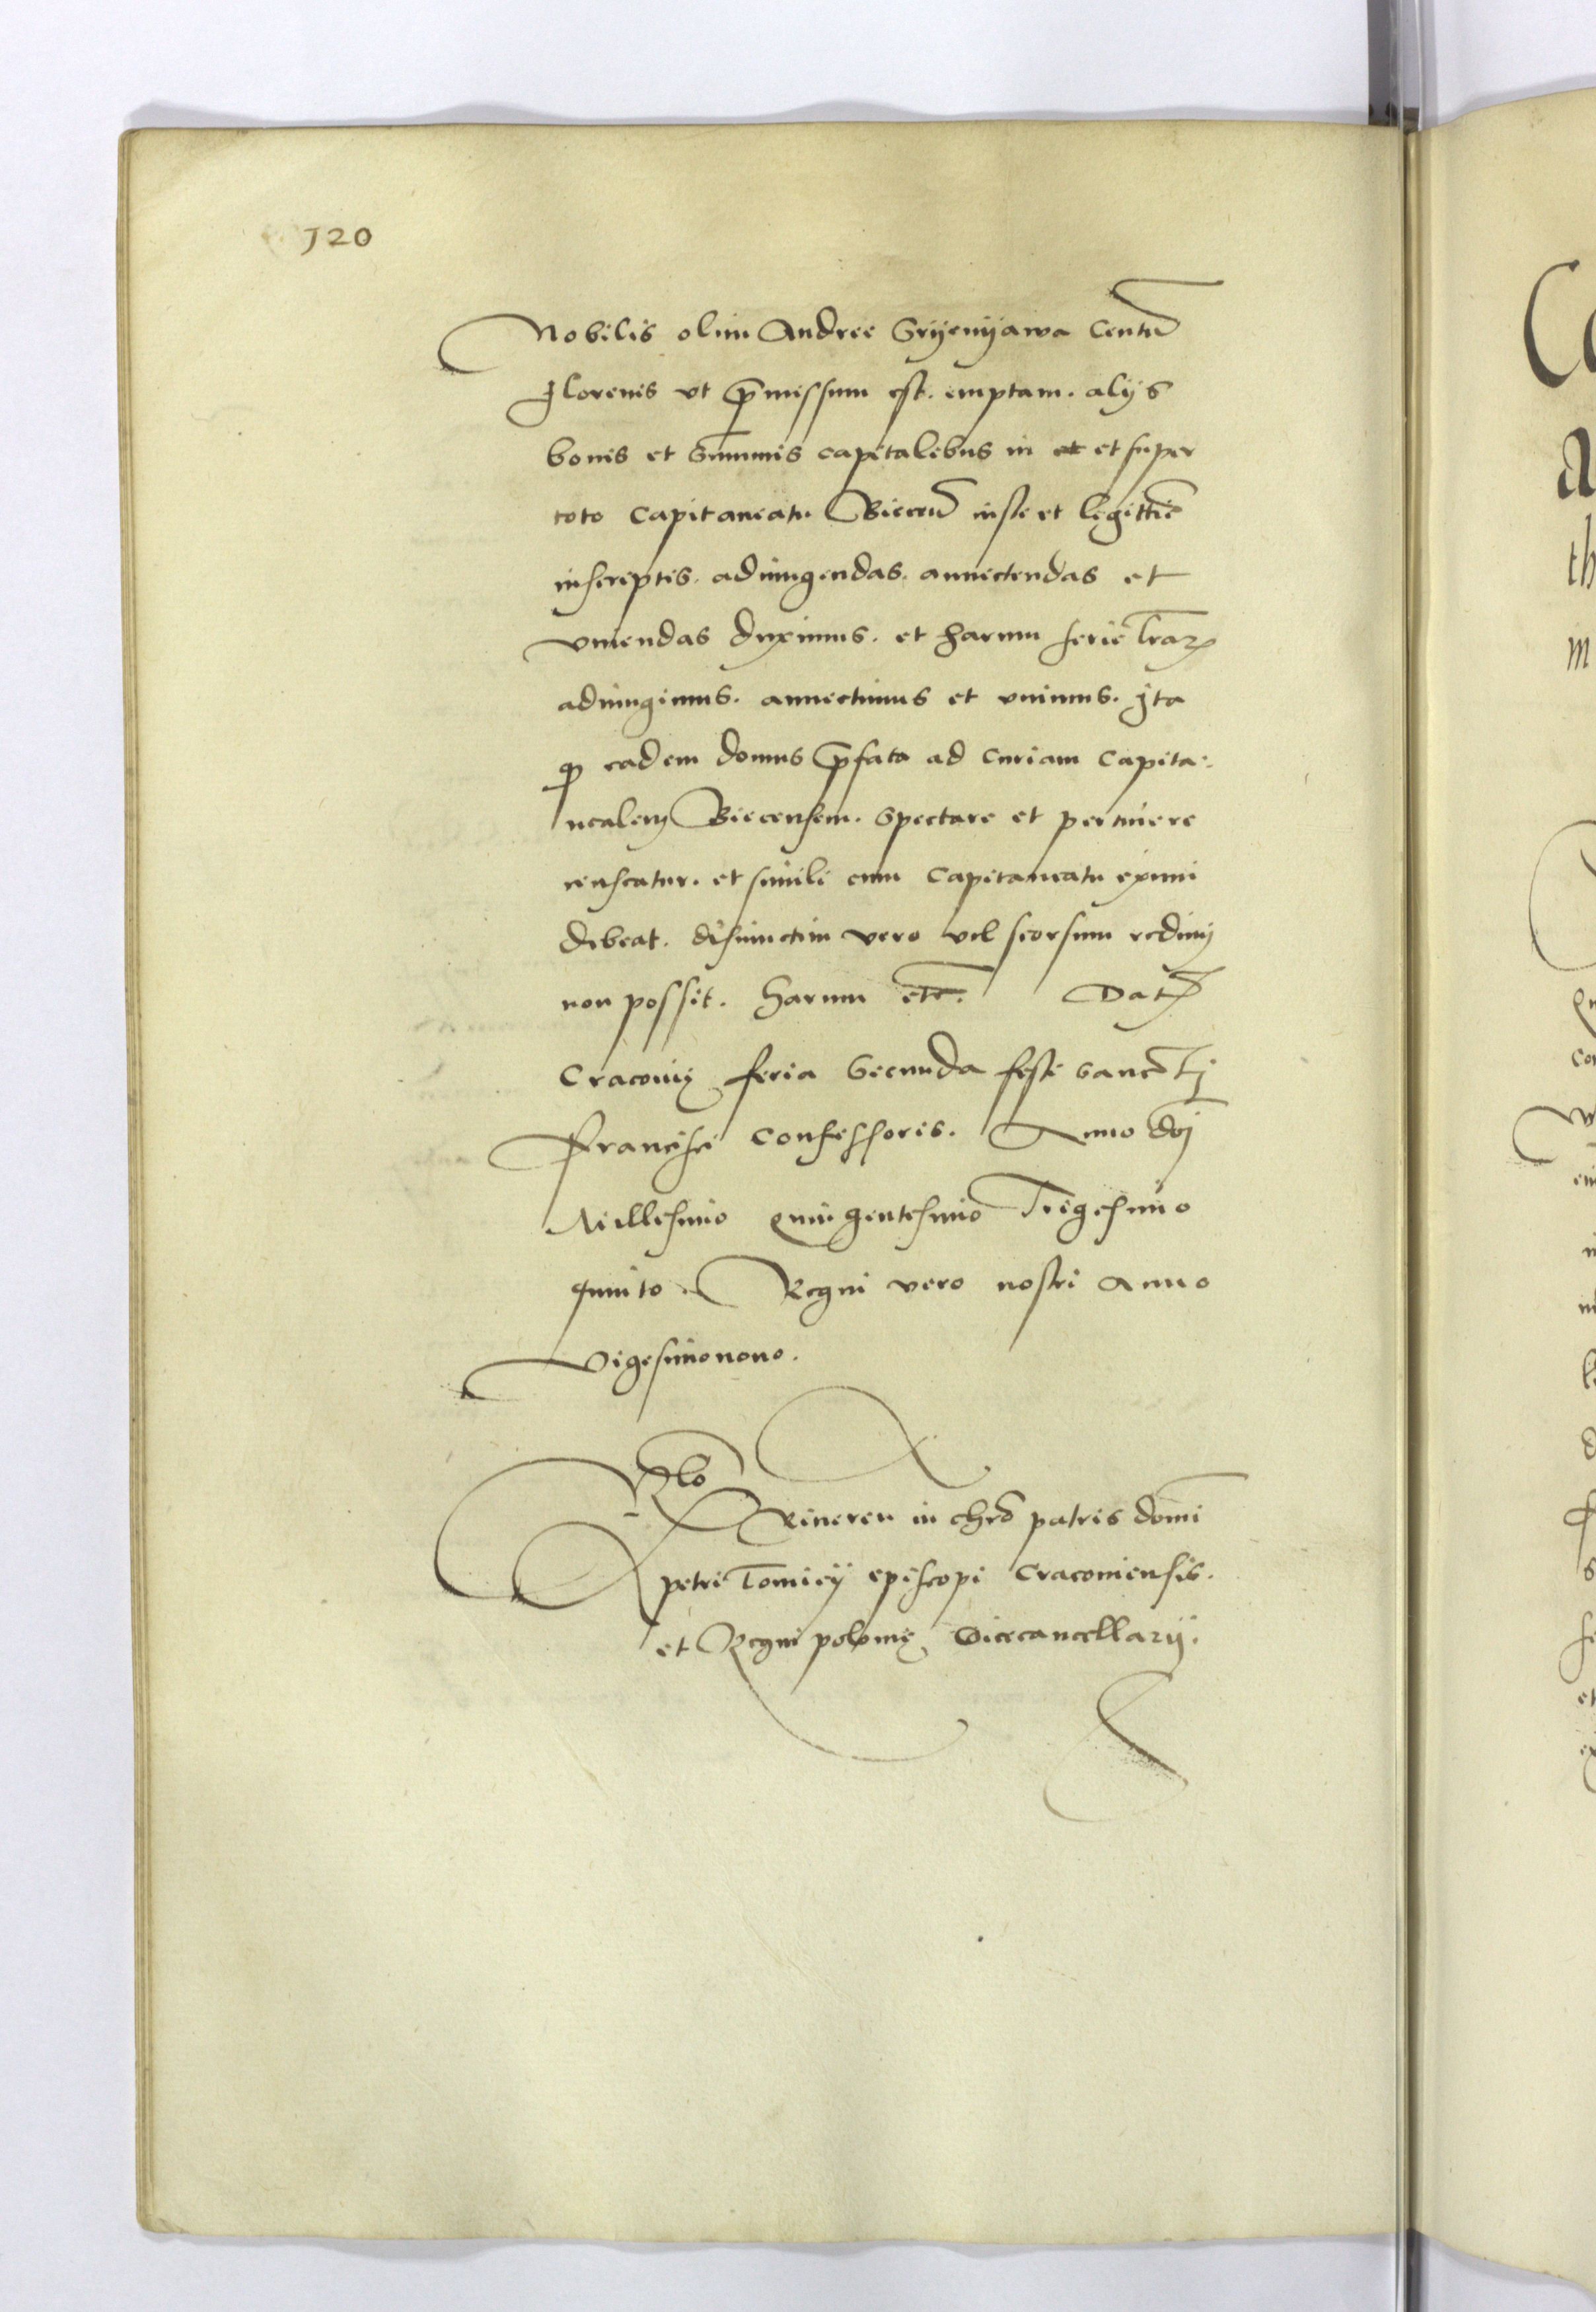 120
Nobilis olim Andree Gryenyawa Centū
florenis vt p̄missum est. emptam. alijs
bonis et Summis capitalibus in et et super
toto Capitaneatu Biecen̄ iuste et legittie
inscriptis. adiungendas. annectendas et
vniendas duximus. et harum serie lr̄aꝝ
adiungimus. annectimus et vnimus. Ita
ꝙ eadem domus p̄fata ad Curiam Capita-
nealem Biecensem. Spectare et pertinere
censeatur. et simili cum Capitaneatu eximi
debeat. disiunctim vero vel seorsum redimj
non possit. Harum etc. Dat
Cracouię feria Secunda festi Sanctj
Francisci Confessoris. Anno dnj
Millesimo Quingentesimo Trigesimo
quinto. Regni vero nostri Anno
Vigesimonono.
Rlo
Reueren in chro patris domi
petri Tomicij episcopi Cracouiensis.
et Regni polonię Vicecancellarij.